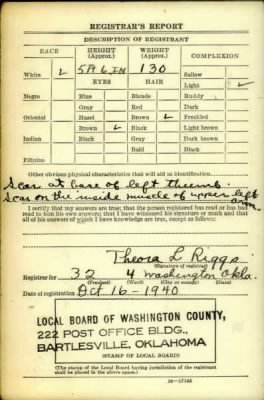 REGISTRAR'S REPORT
DESCRIPTION OF REGISTRANT
RACE HEIGHT (Approx.) WEIGHT (Approx.) COMPLEXION
White ✓ 5 ft 6 in 130 Sallow
EYES HAIR Light ✓
Negro Blue Blonde Ruddy
Gray Red Dark
Oriental Hazel Brown ✓ Freckled
Brown ✓ Black Light brown
Indian Black Gray Dark brown
Bald Black
Filipino
Other obvious physical characteristics that will aid in identification.
Scar at base of left thumb.
Scar on the inside muscle of upper left arm
I certify that my answers are true; that the person registered has read or has had read to him his own answers; that I have witnessed his signature or mark and that all of his answers of which I have knowledge are true, except as follows:
Theora L Riggs
(Signature of registrar)
Registrar for 32 4 Washington Okla.
(Precinct) (Ward) (City or county) (State)
Date of registration Oct 16 - 1940
LOCAL BOARD OF WASHINGTON COUNTY,
222 POST OFFICE BLDG.,
BARTLESVILLE, OKLAHOMA
(STAMP OF LOCAL BOARD)
(The stamp of the Local Board having jurisdiction of the registrant shall be placed in the above space.)
16-17105